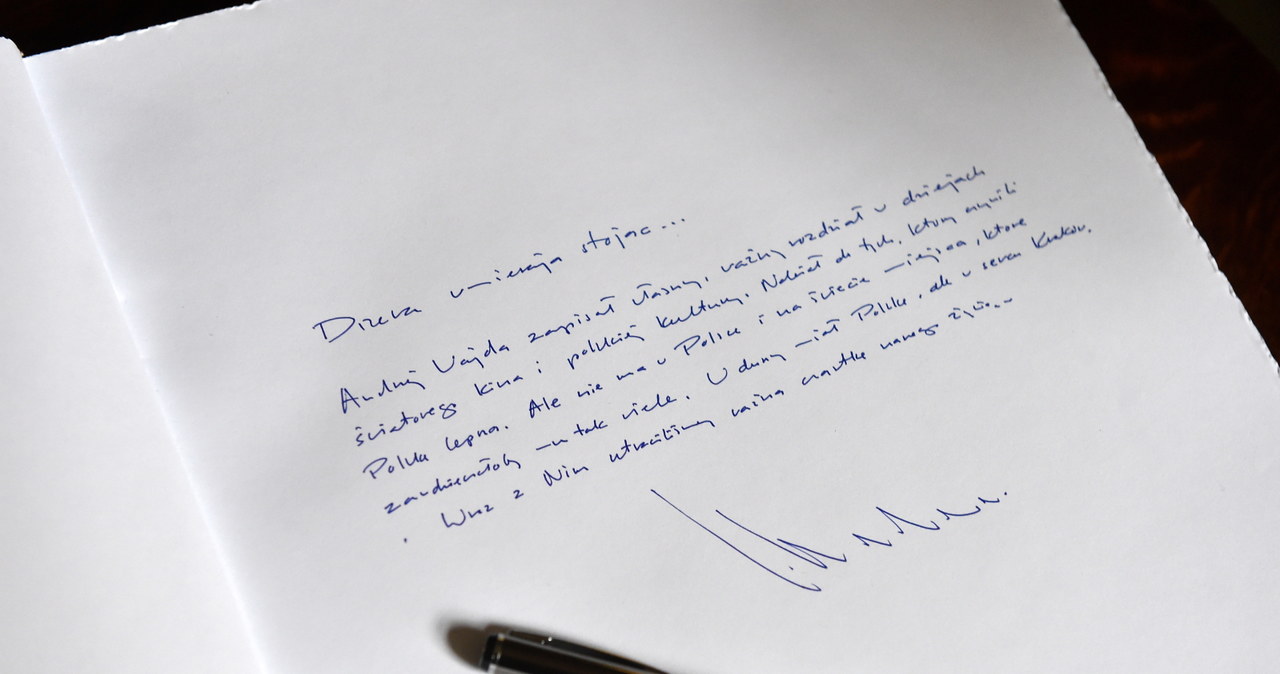 Drzewa umierają stojąc...
Andrzej Wajda zapisał własny, ważny rozdział w dziejach
światowego kina i polskiej kultury. Należał do tych, którzy czynili
Polskę lepszą. Ale nie ma w Polsce i na świecie miejsca, które
zawdzięczałoby mu tak wiele. W duszy miał Polskę, ale w sercu Kraków.
Wraz z Nim utraciliśmy ważną cząstkę naszego życia...